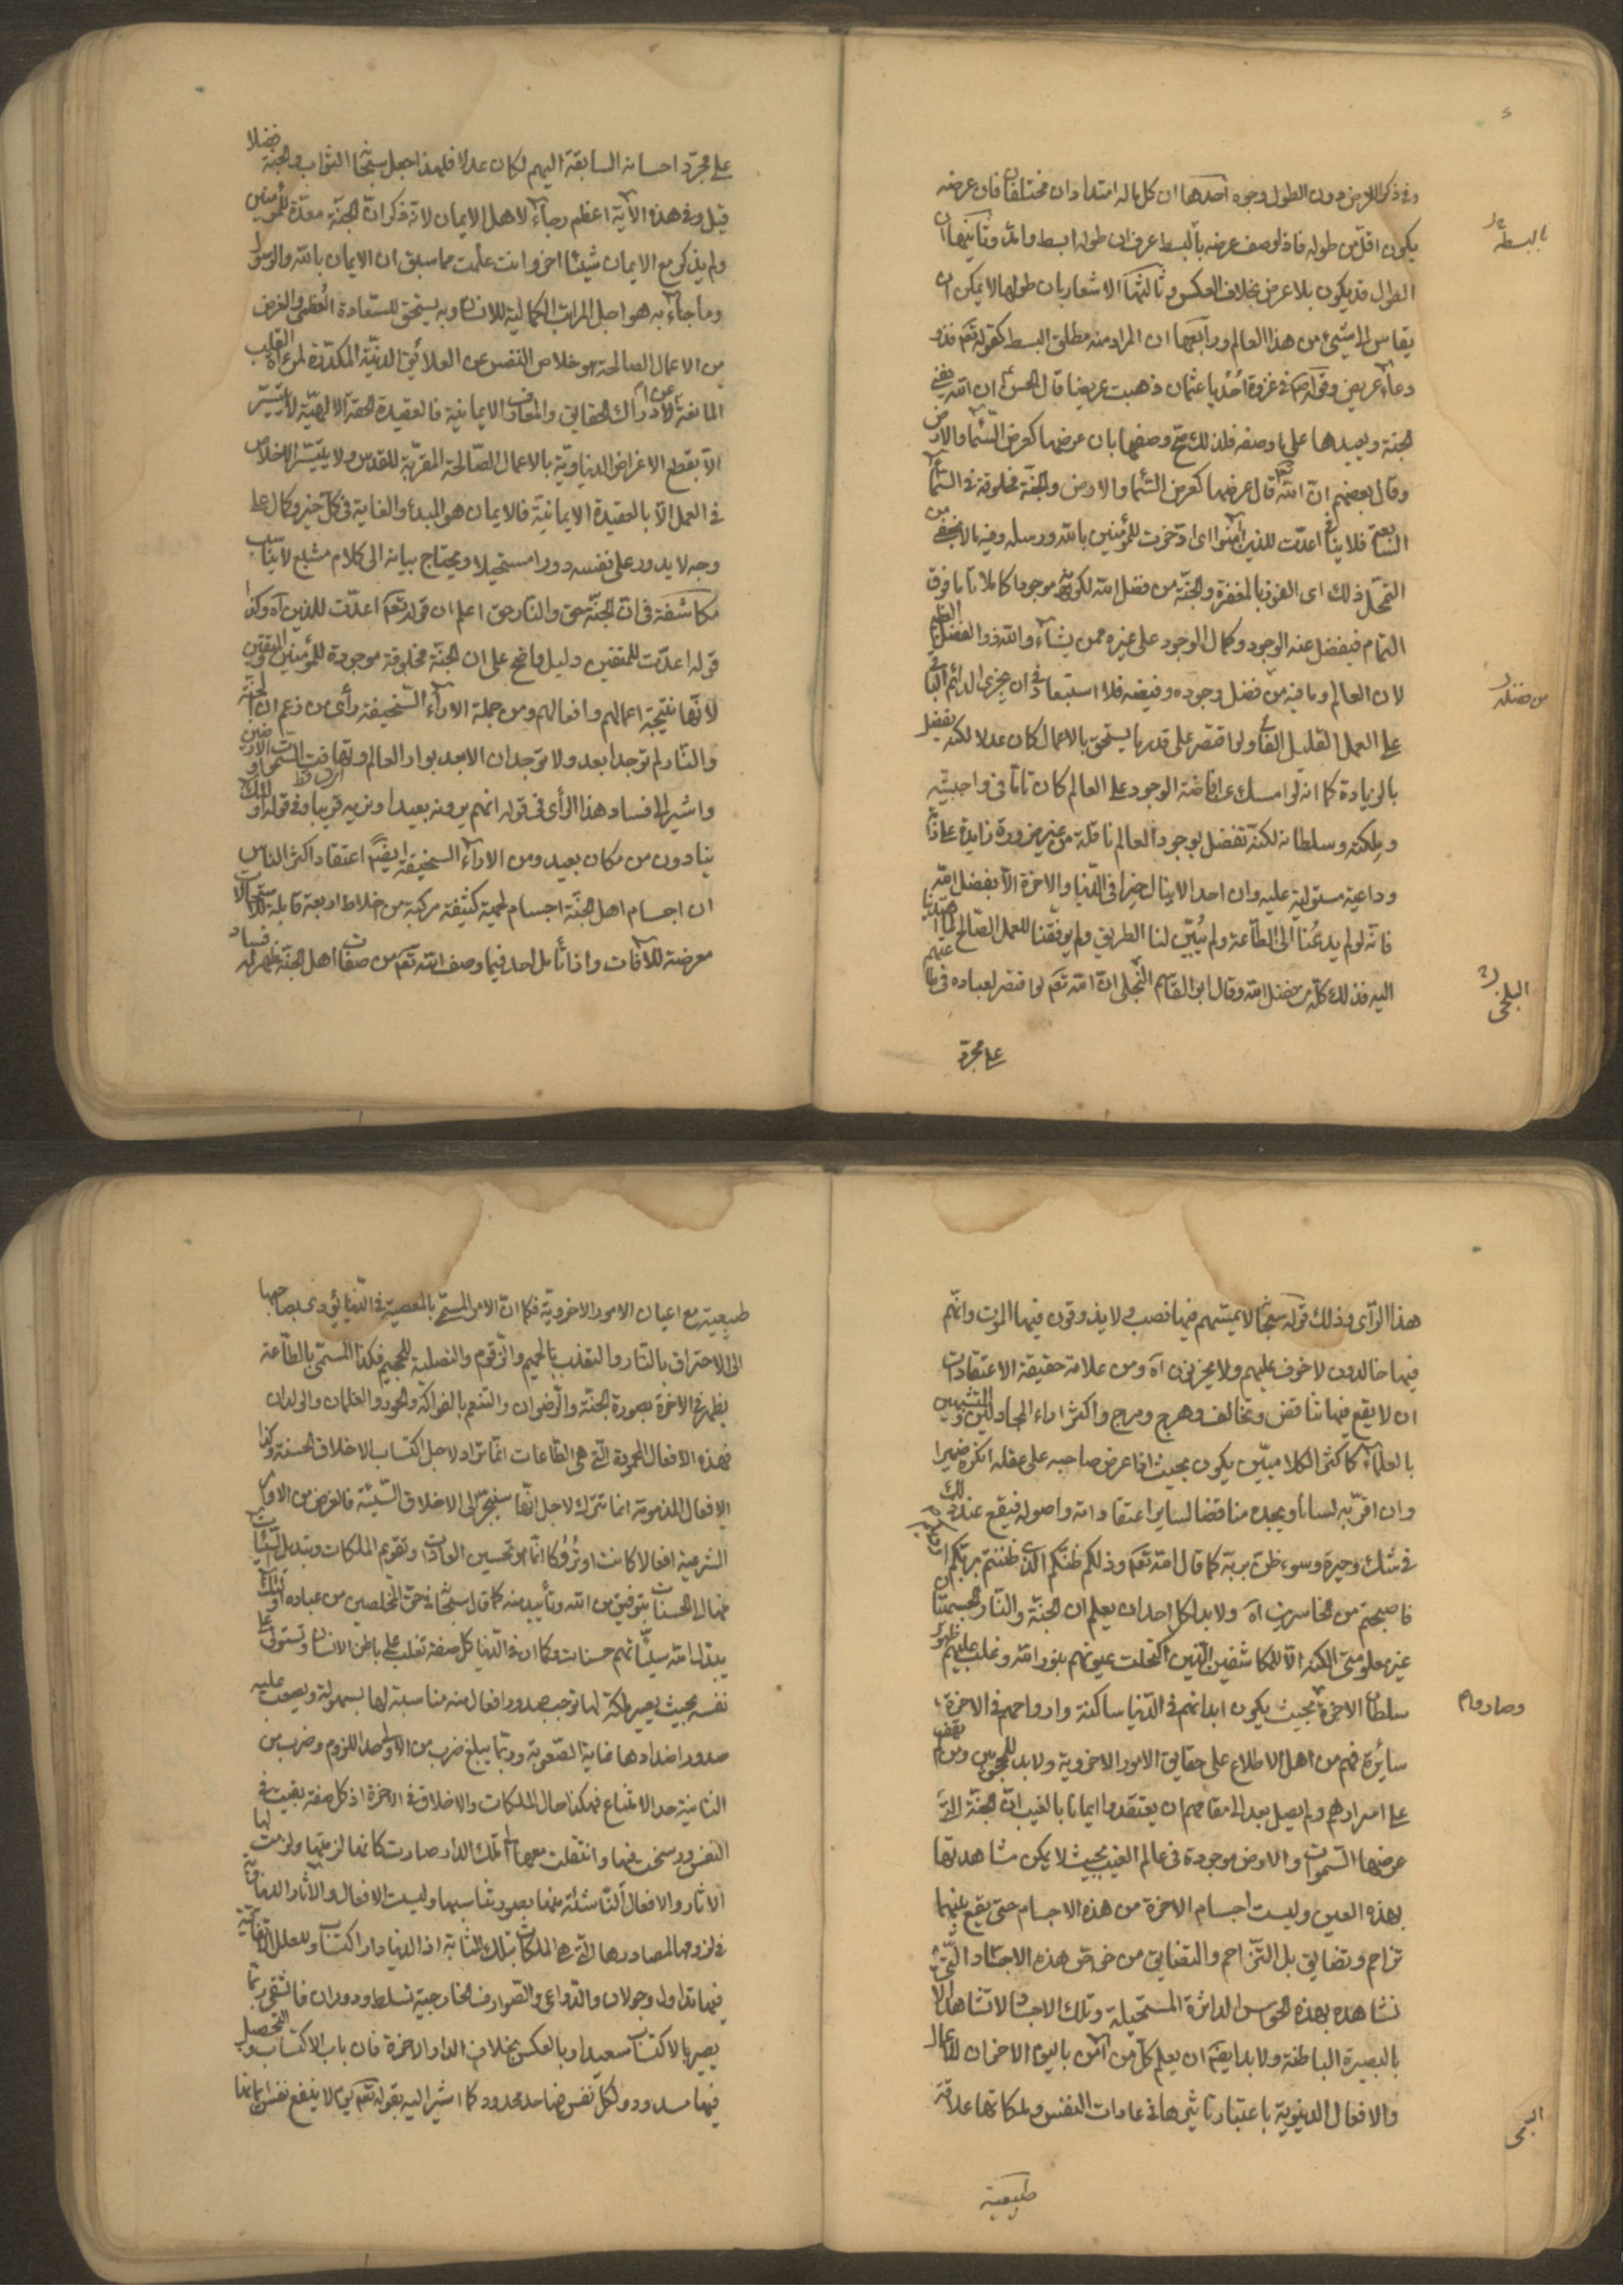 وفى ذكر العرض دون الطول وجوه احدها ان كل ما له امتدادان مختلفان فان عرضه
يكون اقل من طوله فاذا وصف عرضه بالبسط عرف ان طوله ابسط وامد وثانيها ان
بالبسطة
الطول قد يكون بلا عرض بخلاف العكس وثالثها الاشعار بان طولها لا يمكن ان
يقاس الى شيئ من هذا العالم ورابعها ان المراد منه مطلق البسط كقوله تعم فذو
دعاء عريض وقوله ص فى غزوة احد يا عثمان ذهبت عريضا قال الحسن ان الله يفنى
الجنة ويعيدها على ما وصفه فلذلك صح وصفها بان عرضها كعرض السماء والارض
وقال بعضهم ان الله قال عرضها كعرض السماء والارض والجنة مخلوقة فى السماء
السابعة فلا ينافى اعدت للذين آمنوا اى ادخرت للمؤمنين بالله ورسله وفيه ما لا يخفى من
التمحل ذلك اى الفوز بالمغفرة والجنة من فضل الله لكونه موجودا كاملا تاما فوق
التمام فيفضل عنه الوجود وكمال الوجود على غيره ممن يشاء والله ذو الفضل العظيم
لان العالم وما فيه من فضل وجوده وفيضه فلا استبعاد فى ان يجزى الدائم الباقى
من فضله
على العمل القليل الفانى ولو اقتصر على قدر ما يستحق بالاعمال كان عدلا لكنه يفضل
بالزيادة كما انه لو امسك عن افاضة الوجود على العالم كان تاما فى واجبيته
وملكته وسلطانه لكنه تفضل بوجود العالم نافلة من غير ضرورة زايدة على ذاته
وداعية مستولية عليه وان احد لا ينال خيرا فى الدنيا والاخرة الا بفضل الله
فانه لو لم يدعنا الى الطاعة ولم يبين لنا الطريق ولم يوفقنا للعمل الصالح لما اهتدينا
اليه فذلك كله من فضل الله وقال ابو القاسم البجلى ان الله تعم لو اقتصر لعباده فى طاعتهم
البلخى
على مجرد
على مجرد احسانه السابقة اليهم لكان عدلا فلهذا جعل سبحانه الثواب والجنة فضلا
قيل وفى هذه الآية اعظم رجاء لاهل الايمان لانه ذكر ان الجنة معدة للمؤمنين
ولم يذكر مع الايمان شيئا اخر وانت علمت مما سبق ان الايمان بالله والرسول
وما جاء به هو اجل المراتب الكمالية للانسان وبه يستحق للسعادة العظمى والغرض
من الاعمال الصالحة هو خلاص النفس عن العلائق الدنية المكدرة لمرءاة القلب
المانعة عن ادراك الحقايق والمعارف الايمانية فالعقيدة الحقة الالهية لا يتيسر
الا بقطع الاغراض الدنياوية بالاعمال الصالحة المقربة للقدس ولا يتيسر الاخلاص
فى العمل الا بالعقيدة الايمانية فالايمان هو المبدء والغاية فى كل خير وكمال على
وجه لا يدور على نفسه دورا مستحيلا ويحتاج بيانه الى كلام مشبع لا يناسب
مكاشفة فى ان الجنة حق والنار حق اعلم ان قوله تعم اعدت للذين آه وكذا
قوله اعدت للمتقين دليل واضح على ان الجنة مخلوقة موجودة للمؤمنين المتقين
لانها نتيجة اعمالهم وافعالهم ومن جملة الآراء السخيفة رأى من زعم ان الجنة
والنار لم توجدا بعد ولا توجدان الا بعد بوار العالم وتهافت السموات والارضين
واشير الى فساد هذا الرأى فى قوله انهم يرونه بعيدا ونريه قريبا وفى قوله اولئك
ينادون من مكان بعيد ومن الآراء السخيفة ايضا اعتقاد اكثر الناس
ان اجسام اهل الجنة اجسام لحمية كثيفة مركبة من اخلاط اربعة قابلة للاستحالات
معرضة للآفات واذا تأمل احد فيما وصف الله تعم من صفات اهل الجنة ظهر له فساد
هذا الرأى وذلك قوله سبحانه لا يمسهم فيها نصب ولا يذوقون فيها الموت وانهم
فيها خالدون لا خوف عليهم ولا يحزنون آه ومن علامة حقيقة الاعتقادات
ان لا يقع فيها تناقض وتخالف وهرج ومرج واكثر اراء المجادلين والمتشبهين
بالعلماء كاكثر الكلاميين يكون بحيث اذا عرض صاحبه على عقله انكره ضميرا
وان اقر به لسانا ويجده مناقضا لساير اعتقاداته واصوله فيقع عند ذلك
فى شك وحيرة وسوء ظن بربه كما قال الله تعم وذلكم ظنكم الذى ظننتم بربكم ارديكم
فاصبحتم من الخاسرين آه ولا بد لكل احد ان يعلم ان الجنة والنار الجسمتان
غير معلومتى الكنه الا للمكاشفين الذين اكتحلت عيونهم بنور الله وغلب عليهم ظهور
سلطان الاخرة بحيث يكون ابدانهم فى الدنيا ساكنة وارواحهم فى الاخرة
سائرة فهم من اهل الاطلاع على حقايق الامور الاخروية ولا بد للمحجوبين ومن لم يقف
على اسرارهم ولم يصل بعد الى مقامهم ان يعتقدوا ايمانا بالغيب ان الجنة التى
عرضها السموات والارض موجودة فى عالم الغيب بحيث لا يمكن مشاهدتها
بهذه العين وليست اجسام الاخرة من هذه الاجسام حتى يقع بينهما
تزاحم وتضايق بل التزاحم والتضايق من خواص هذه الاجساد التى
نشاهده بهذه الحواس الداثرة المستحيلة وتلك الاجساد لا تشاهد الا
بالبصيرة الباطنة ولا بد ايضا ان يعلم كل من آمن باليوم الاخر ان للاعمال
والافعال الدنيوية باعتبار تاثيرها فى عادات النفس وملكاتها علاقة
طبيعية
طبيعية مع اعيان الامور الاخروية فكما ان الامر المسمى بالمعصية فى الدنيا يؤدى بصاحبها
الى الاحتراق بالنار والتعذب بالحميم والزقوم والتصلية للجحيم فكذا المسمى بالطاعة
يظهر فى الاخرة بصورة الجنة والرضوان والتنعم بالفواكه والحور والغلمان والولدان
فهذه الافعال المحمودة التى هى الطاعات انما تراد لاجل اكتساب الاخلاق الحسنة وكذا
الافعال المذمومة انما تترك لاجل انها سينجر الى الاخلاق السيئة فالغرض من الاوامر
الشرعية افعالا كانت او تروكا انما هو تحسين العادات وتقويم الملكات وتبديل السيئات
فيها الى الحسنات بتوفيق من الله وتأييد منه كما قال سبحانه فى حق المخلصين من عباده اولئك
يبدل الله سيئاتهم حسنات وكما ان فى الدنيا كل صفة تغلب على باطن الانسان وتستولى على
نفسه بحيث يصير ملكة لها توجب صدور افعال منه مناسبة لها بسهولة ويصعب عليه
صدور اضدادها غاية الصعوبة وربما يبلغ ضرب من الاول حد اللزوم وضرب من
الثانية حد الامتناع فهكذا حال الملكات والاخلاق فى الاخرة اذ كل صفة بقيت فى
النفس ورسخت فيها وانتقلت معها الى تلك الدار صارت كانها لزمتها ولزمت لها
الاثار والافعال الناشئة منها بصورة تناسبها وليست الافعال والاثار الدنياوية
فى لزومها لمصادرها التى هى الملكات بتلك المثابة اذ الدنيا دار اكتساب وللعلل الاتفاقية
فيها تداول وجولان والدواعى والصوارف الخارجية تسلط ودوران فالشقى ربما
يصير بالاكتساب سعيدا وبالعكس بخلاف الدار الاخرة فان باب الاكتساب والتحصيل
فيها مسدود ولكل نفس منها حد محدود كما اشير اليه بقوله تعم يوم لا ينفع نفسا ايمانها